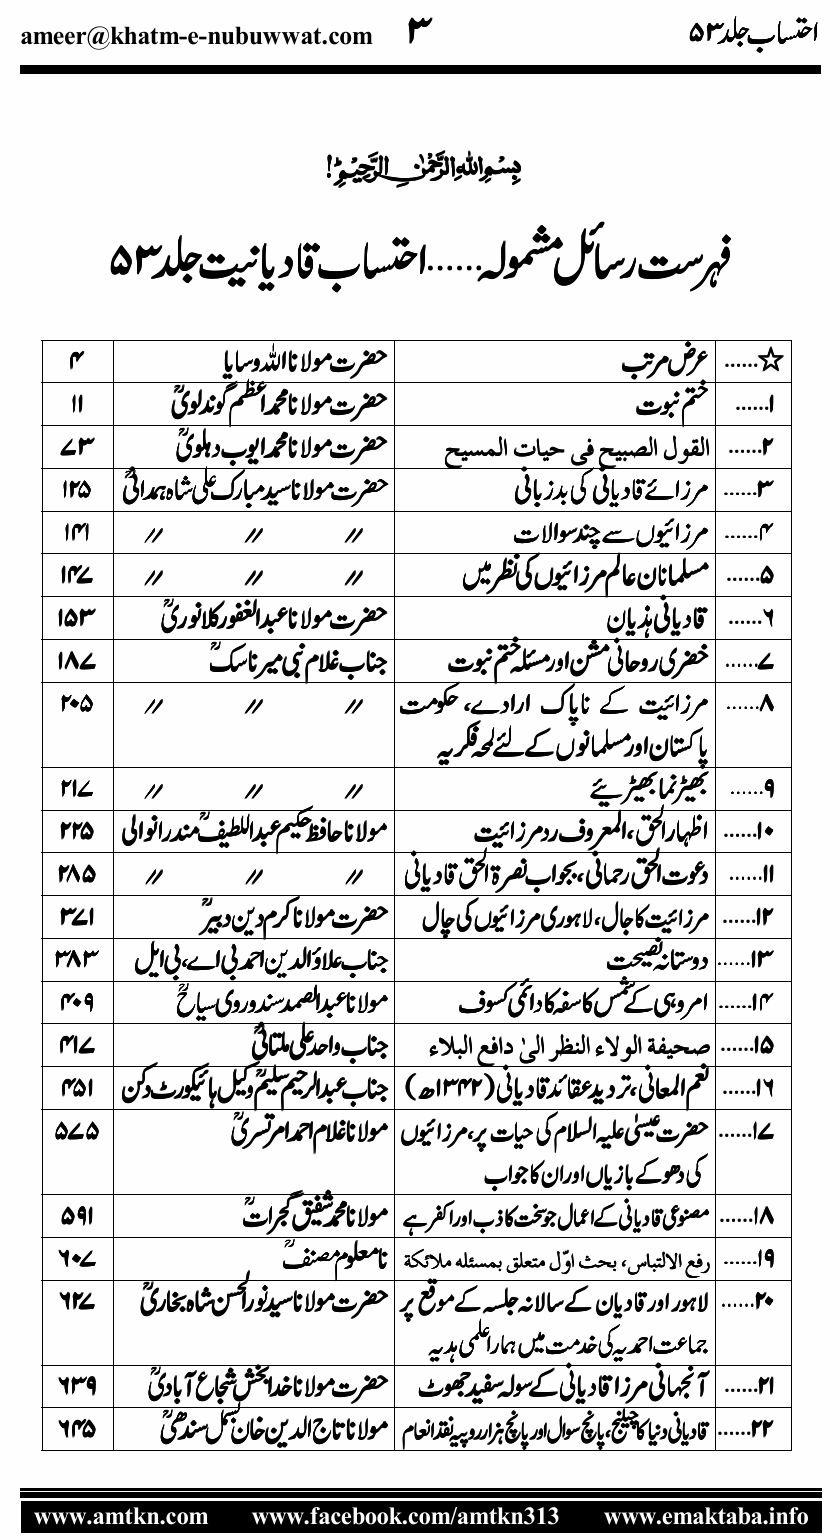 احتساب جلد ۵۳ ۳ ameer@khatm-e-nubuwwat.com
بسم اللہ الرحمٰن الرحیم!
فہرست رسائل مشمولہ......احتساب قادیانیت جلد ۵۳
☆...... عرض مرتب حضرت مولانا اللہ وسایا ۴
۱...... ختم نبوت حضرت مولانا محمد اعظم گوندلویؒ ۱۱
۲...... القول الصبیح فی حیات المسیح حضرت مولانا محمد ایوب دہلویؒ ۷۳
۳...... مرزائے قادیانی کی بدزبانی حضرت مولانا سید مبارک علی شاہ ہمدانیؒ ۱۲۵
۴...... مرزائیوں سے چند سوالات // // // ۱۴۱
۵...... مسلمانان عالم مرزائیوں کی نظر میں // // // ۱۴۷
۶...... قادیانی ہذیان حضرت مولانا عبدالغفور کلانوریؒ ۱۵۳
۷...... خضری روحانی مشن اور مسئلہ ختم نبوت جناب غلام نبی میر ناسکؒ ۱۸۷
۸...... مرزائیت کے ناپاک ارادے، حکومت // // // ۲۰۵
پاکستان اور مسلمانوں کے لئے لمحہ فکریہ
۹...... بھیڑ نما بھیڑیئے // // // ۲۱۷
۱۰...... اظہار الحق، المعروف رد مرزائیت مولانا حافظ حکیم عبداللطیفؒ مندرانوالی ۲۲۵
۱۱...... دعوت الحق رحمانی، بجواب نصرۃ الحق قادیانی // // // ۲۸۵
۱۲...... مرزائیت کا جال، لاہوری مرزائیوں کی چال حضرت مولانا کرم دین دبیرؒ ۳۷۱
۱۳...... دوستانہ نصیحت جناب علاؤالدین احمد بی اے، بی ایل ۳۸۳
۱۴...... امروہی کے شمس کاسفہ کا دائمی کسوف مولانا عبدالصمد سندوروی سیاحؒ ۴۰۹
۱۵...... صحیفۃ الولاء النظر الیٰ دافع البلاء جناب واحد علی ملتانیؒ ۴۱۷
۱۶...... نعم المعانی، تردید عقائد قادیانی (۱۳۴۲ھ) جناب عبدالرحیم سلیمؒ وکیل ہائیکورٹ دکن ۴۵۱
۱۷...... حضرت عیسیٰ علیہ السلام کی حیات پر، مرزائیوں مولانا غلام احمد امرتسریؒ ۵۷۵
کی دھوکے بازیاں اور ان کا جواب
۱۸...... مصنوعی قادیانی کے اعمال جو سخت کاذب اور اکفر ہے مولانا محمد شفیق گجراتؒ ۵۹۱
۱۹...... رفع الالتباس، بحث اوّل متعلق بمسئلہ ملائکۃ نامعلوم مصنفؒ ۶۰۷
۲۰...... لاہور اور قادیان کے سالانہ جلسہ کے موقع پر حضرت مولانا سید نور الحسن شاہ بخاریؒ ۶۲۷
جماعت احمدیہ کی خدمت میں ہمارا علمی ہدیہ
۲۱...... آنجہانی مرزا قادیانی کے سولہ سفید جھوٹ حضرت مولانا خدا بخش شجاع آبادیؒ ۶۳۹
۲۲...... قادیانی دنیا کا چیلنج، پانچ سوال اور پانچ ہزار روپیہ نقد انعام مولانا تاج الدین خان بسمل سندھیؒ ۶۴۵
www.amtkn.com www.facebook.com/amtkn313 www.emaktaba.info